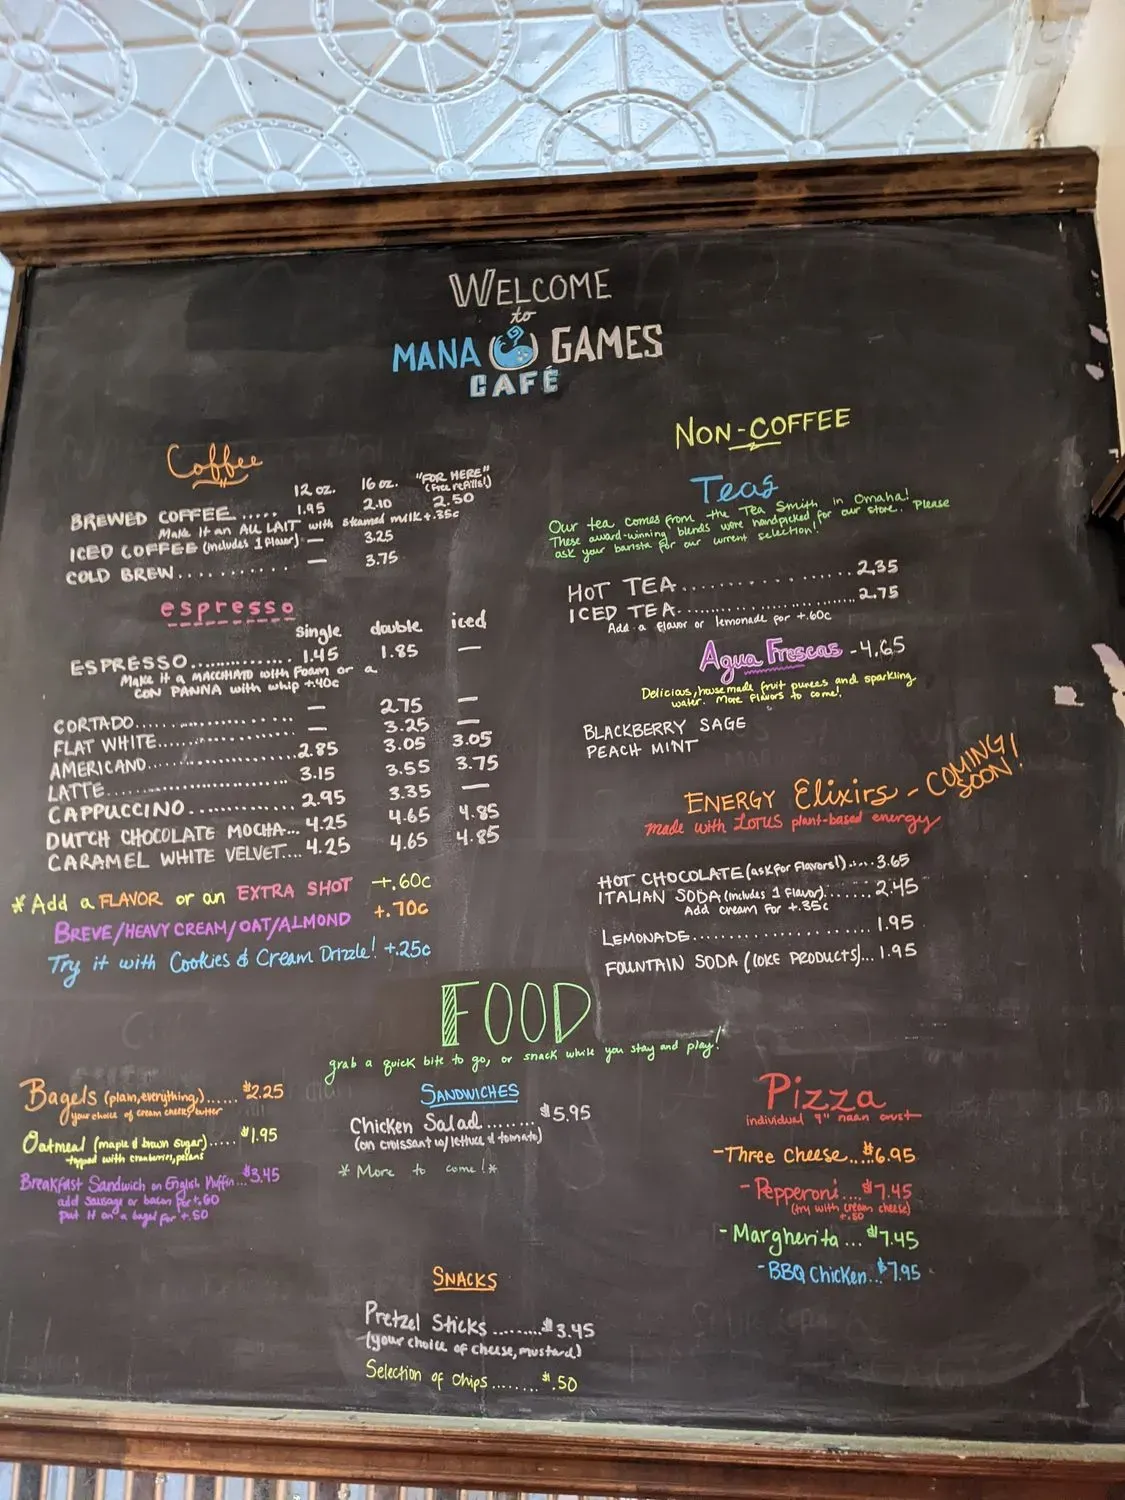 WELCOME
to
MANA GAMES
CAFÉ
Coffee
12 oz. 16 oz. "FOR HERE"
(free refills!)
BREWED COFFEE ..... 1.95 2.10 2.50
Make it an AU LAIT with steamed milk +.35c
ICED COFFEE (includes 1 flavor) — 3.25
COLD BREW........... — 3.75
espresso
single double iced
ESPRESSO.............. 1.45 1.85 —
Make it a MACCHIATO with foam or a
CON PANNA with whip +.40c
CORTADO...................... — 2.75 —
FLAT WHITE................... — 3.25 —
AMERICANO.................... 2.85 3.05 3.05
LATTE........................ 3.15 3.55 3.75
CAPPUCCINO............ 2.95 3.35 —
DUTCH CHOCOLATE MOCHA... 4.25 4.65 4.85
CARAMEL WHITE VELVET.... 4.25 4.65 4.85
*Add a FLAVOR or an EXTRA SHOT +.60c
BREVE/HEAVY CREAM/OAT/ALMOND +.70c
Try it with Cookies & Cream Drizzle! +.25c
NON-COFFEE
Teas
Our tea comes from the Tea Smith in Omaha!
These award-winning blends were handpicked for our store. Please
ask your barista for our current selection!
HOT TEA.................. 2.35
ICED TEA................. 2.75
Add a flavor or lemonade for +.60c
Agua Frescas - 4.65
Delicious, housemade fruit purees and sparkling
water. More flavors to come!
BLACKBERRY SAGE
PEACH MINT
ENERGY Elixirs - COMING SOON!
made with LOTUS plant-based energy
HOT CHOCOLATE (ask for flavors!)..... 3.65
ITALIAN SODA (includes 1 flavor)....... 2.45
Add cream for +.35c
LEMONADE...................... 1.95
FOUNTAIN SODA (COKE PRODUCTS)... 1.95
FOOD
grab a quick bite to go, or snack while you stay and play!
Bagels (plain, everything)...... $2.25
your choice of cream cheese, butter
Oatmeal (maple & brown sugar)..... $1.95
topped with cranberries, pecans
Breakfast Sandwich on English Muffin... $3.45
add sausage or bacon for +.60
put it on a bagel for +.50
SANDWICHES
Chicken Salad ........ $5.95
(on croissant w/ lettuce & tomato)
* More to come! *
SNACKS
Pretzel Sticks ......... $3.45
(your choice of cheese, mustard)
Selection of chips........ $.50
Pizza
individual 9" naan crust
-Three Cheese... $6.95
-Pepperoni.... $7.45
(try with cream cheese)
+.50
-Margherita ... $7.45
-BBQ Chicken... $7.95